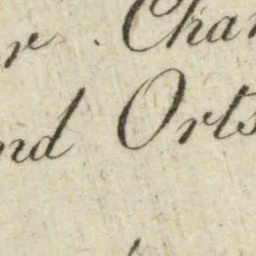 r . Char
nd Orts